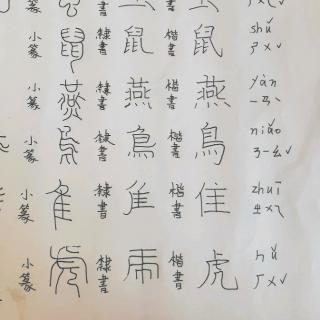 小篆 鼠 隸書 鼠 楷書 鼠 shǔ ㄕㄨˇ
小篆 燕 隸書 燕 楷書 燕 yàn ㄧㄢˋ
小篆 鳥 隸書 鳥 楷書 鳥 niǎo ㄋㄧㄠˇ
小篆 隹 隸書 隹 楷書 隹 zhuī ㄓㄨㄟ
小篆 虎 隸書 虎 楷書 虎 hǔ ㄏㄨˇ